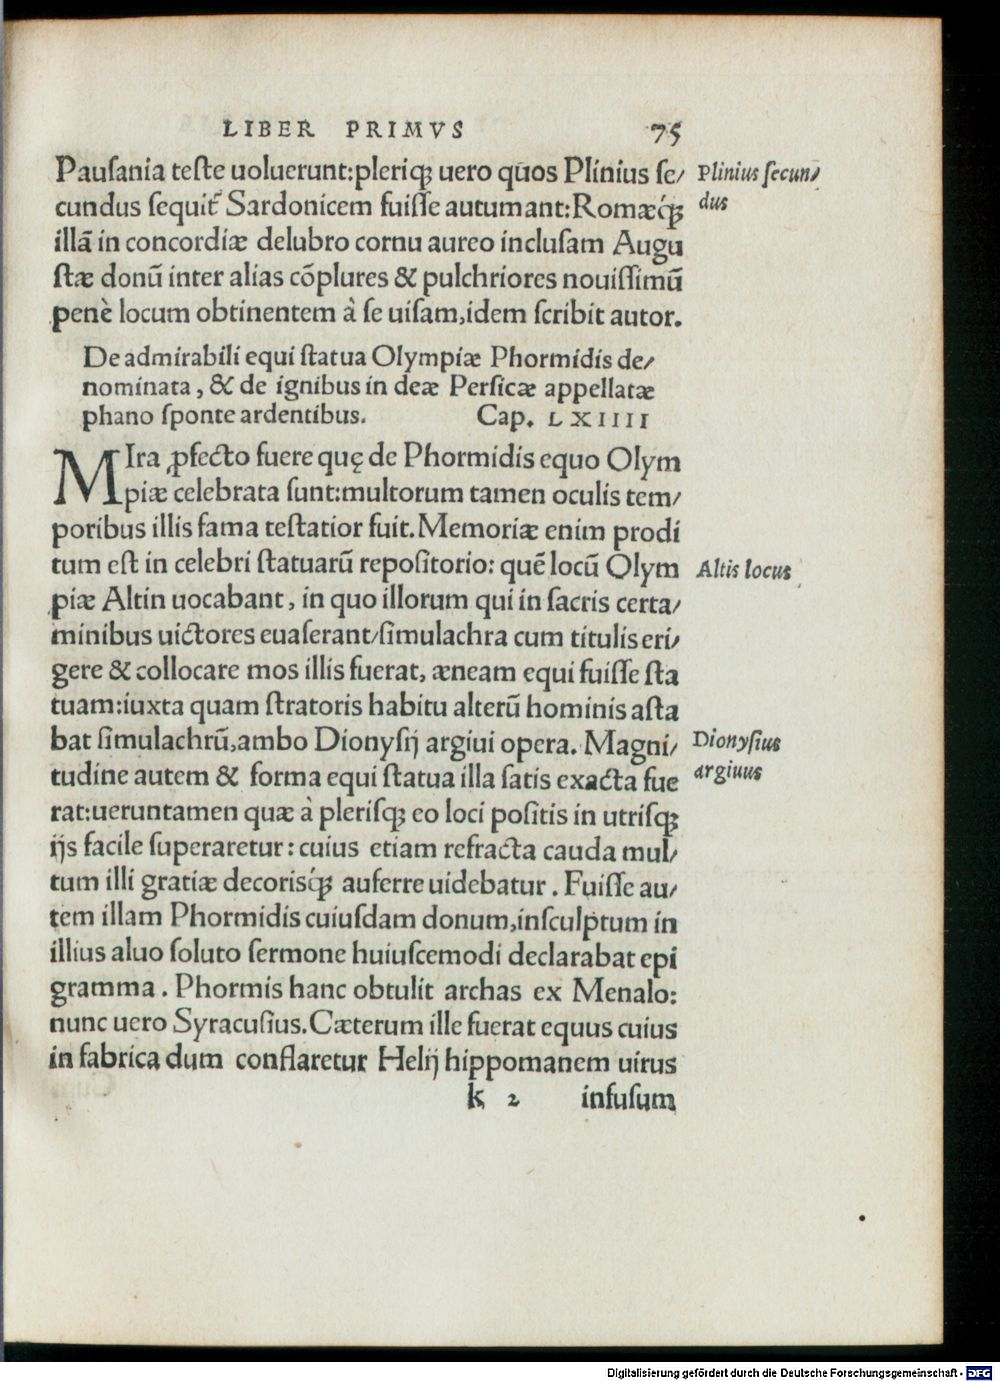 LIBER PRIMVS 75
Pauſania teſte uoluerunt:pleriqꝫ uero quos Plinius ſe/
Plinius ſecun/
cundus ſequit᷑ Sardonicem fuiſſe autumant:Romæq́ꝫ
dus
illã in concordiæ delubro cornu aureo incluſam Augu
ſtæ donũ inter alias cõplures & pulchriores nouiſſimũ
penè locum obtinentem à ſe uiſam,idem ſcribit autor.
De admirabili equi ſtatua Olympiæ Phormidis de/
nominata, & de ignibus in deæ Perſicæ appellatæ
phano ſponte ardentibus. Cap. LXIIII
MIra ꝓfecto fuere quę de Phormidis equo Olym
piæ celebrata ſunt:multorum tamen oculis tem/
poribus illis fama teſtatior fuit.Memoriæ enim prodi
tum eſt in celebri ſtatuarũ repoſitorio: quẽ locũ Olym
Altis locus
piæ Altin uocabant, in quo illorum qui in ſacris certa/
minibus uictores euaſerant/ſimulachra cum titulis eri/
gere & collocare mos illis fuerat, æneam equi fuiſſe ſta
tuam:iuxta quam ſtratoris habitu alterũ hominis aſta
bat ſimulachrũ,ambo Dionyſij argiui opera. Magni/
Dionyſius
tudine autem & forma equi ſtatua illa ſatis exacta fue
argiuus
rat:ueruntamen quæ à pleriſqꝫ eo loci poſitis in utriſqꝫ
ijs facile ſuperaretur: cuius etiam refracta cauda mul/
tum illi gratiæ decoriſq́ꝫ auferre uidebatur. Fuiſſe au/
tem illam Phormidis cuiuſdam donum,inſculptum in
illius aluo ſoluto ſermone huiuſcemodi declarabat epi
gramma. Phormis hanc obtulit archas ex Menalo:
nunc uero Syracuſius.Cæterum ille fuerat equus cuius
in fabrica dum conflaretur Helij hippomanem uirus
k 2 infuſum
Digitalisierung gefördert durch die Deutsche Forschungsgemeinschaft - DFG